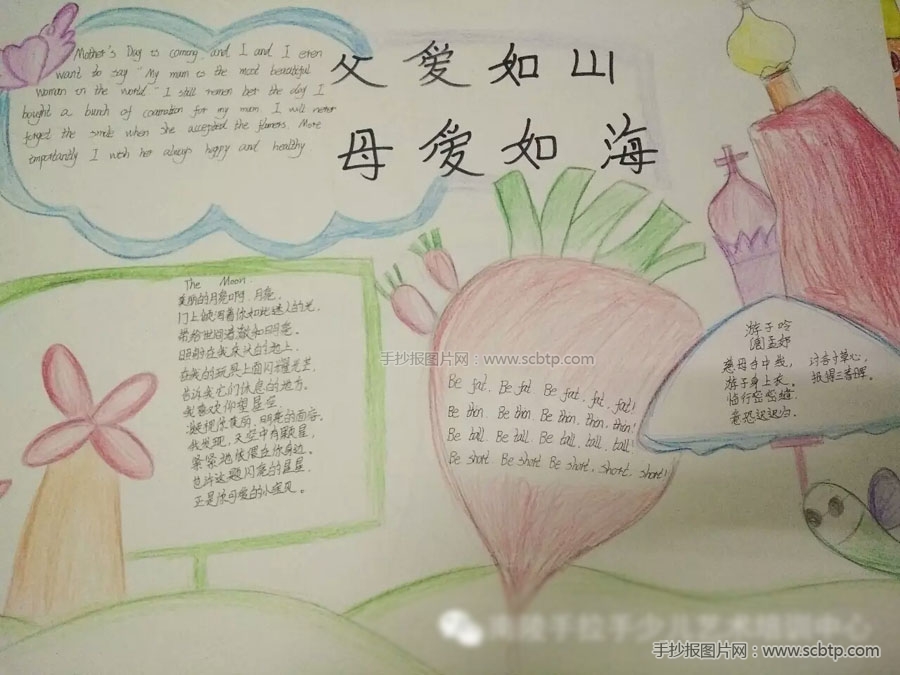 Mother's Day is coming, and I and I even
want to say "My mum is the most beautiful
woman in the world" I still remem ber the day I
bought a bunch of carnation for my mum. I will never
forget the smile when she accepted the flowers. More
importantly I wish her always happy and healthy.
父爱如山
母爱如海
The Moon
美丽的月亮啊,月亮,
门上映着你如此迷人的光,
带给世间喜歡和明亮。
照射在我床头的地上,
在我的玩具上面闪耀光芒,
告诉我它们休息的地方。
我喜欢仰望星空
凝视你美丽、明亮的面容。
我发现,天空中有颗星,
紧紧地偎傍在你身边。
也许这颗闪亮的星星
正是你可爱的小宝贝。
手抄报图片网:www.scbtp.com
Be fat, Be fat Be fat, fat, fat!
Be thin, Be thin, Be thin, thin, thin!
Be tall, Be tall, Be tall, tall, tall!
Be short Be short Be short, short, short!
游子吟
孟郊
慈母手中线,
游子身上衣。
临行密密缝
意恐迟迟归。
寸草心,
报得三春晖。
南陵手拉手少儿艺术培训中心
手抄报图片网:www.scbtp.com